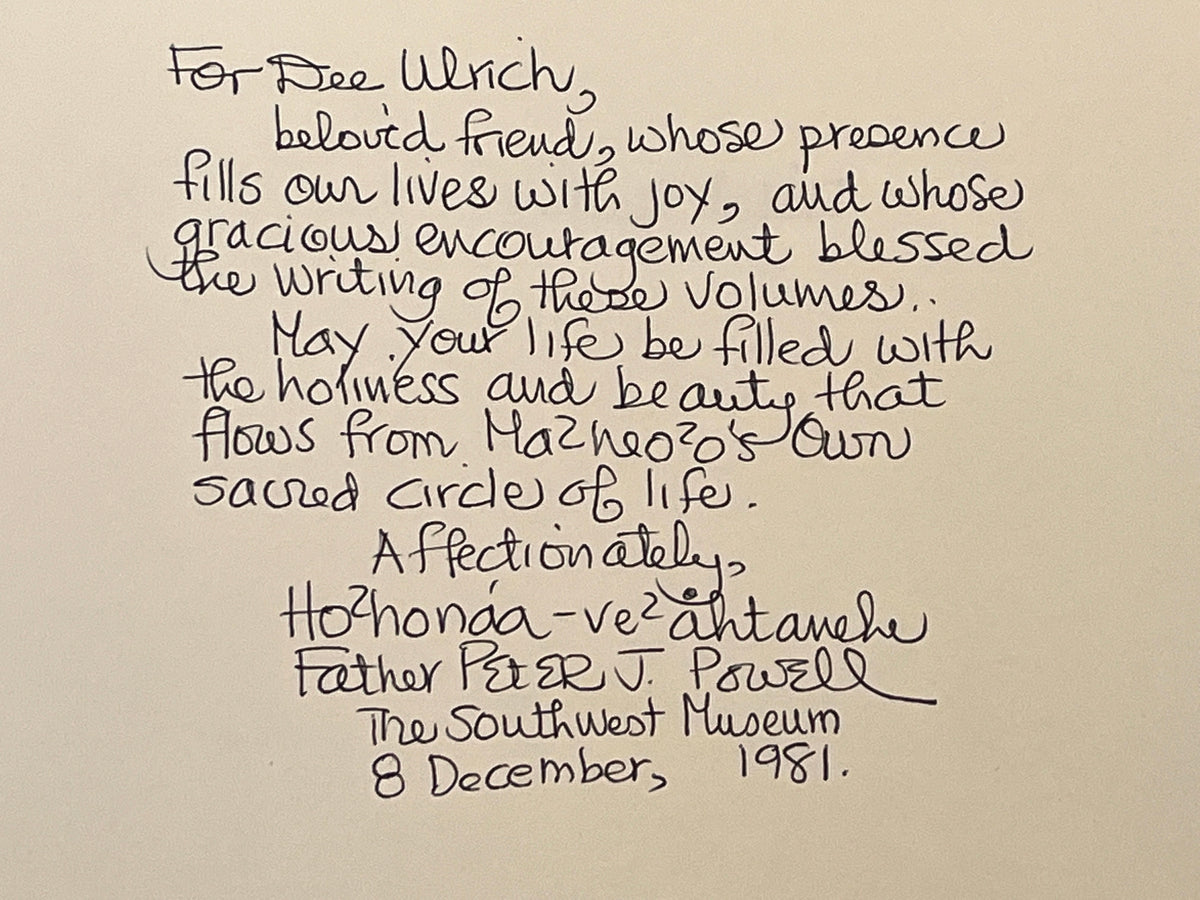 For Dee Ulrich,
belov'd friend, whose presence
fills our lives with joy, and whose
gracious encouragement blessed
the writing of these volumes..
May your life be filled with
the holiness and beauty that
flows from Maʔheoʔo's Own
sacred circle of life.
Affectionately,
Hoʔhonáa-veʔåhtanehe
Father PETER J. POWELL
The Southwest Museum
8 December, 1981.